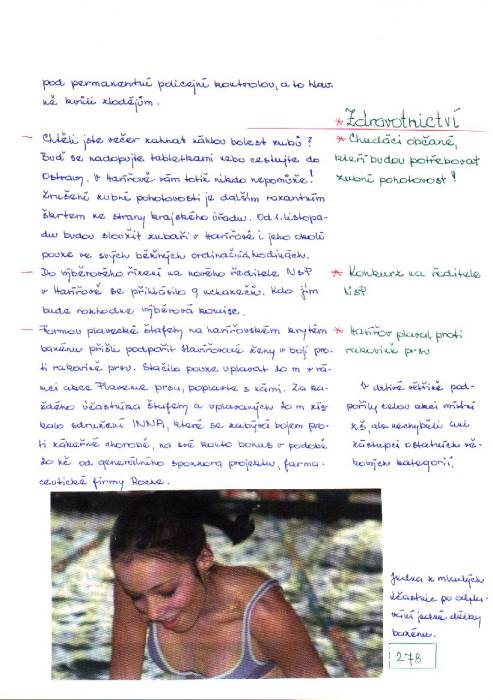 pod permanentní policejní kontrolou, a to hlav-
ně kvůli zlodějům.
* Zdravotnictví
— Chtěli jste večer zahnat náhlou bolest zubů?
Buď se nadopujte tabletkami nebo cestujte do
Ostravy. V Havířově vám totiž nikdo nepomůže!
Zrušení zubní pohotovosti je dalším razantním
škrtem ze strany krajského úřadu. Od 1. listopa-
du budou sloužit zubaři v Havířově i jeho okolí
pouze ve svých běžných ordinačních hodinách.
* Chudáci občané,
kteří budou potřebovat
zubní pohotovost!
— Do výběrového řízení na nového ředitele NsP
v Havířově se přihlásilo 9 uchazečů. Kdo jím
bude rozhodne výběrová komise.
* Konkurz na ředitele
NsP
— Formou plavecké štafety na havířovském krytém
bazénu přišli podpořit Havířované ženy v boji pro-
ti rakovině prsu. Stačilo pouze uplavat 20 m v rá-
mci akce Plaveme prsa, poplavte s námi. Za ka-
ždého účastníka štafety a uplavaných 20 m zís-
kalo sdružení INNA, které se zabývá bojem pro-
ti zákeřné chorobě, na své konto bonus v podobě
20 kč od generálního sponzora projektu, farma-
ceutické firmy Roche.
* Havířov plaval proti
rakovině prsu
V drtivé většině pod-
pořily celou akci místní
zš, ale nechyběli ani
zástupci ostatních vě-
kových kategorií.
Jedna z mladých
účastnic po odpla-
vání jedné délky
bazénu.
278